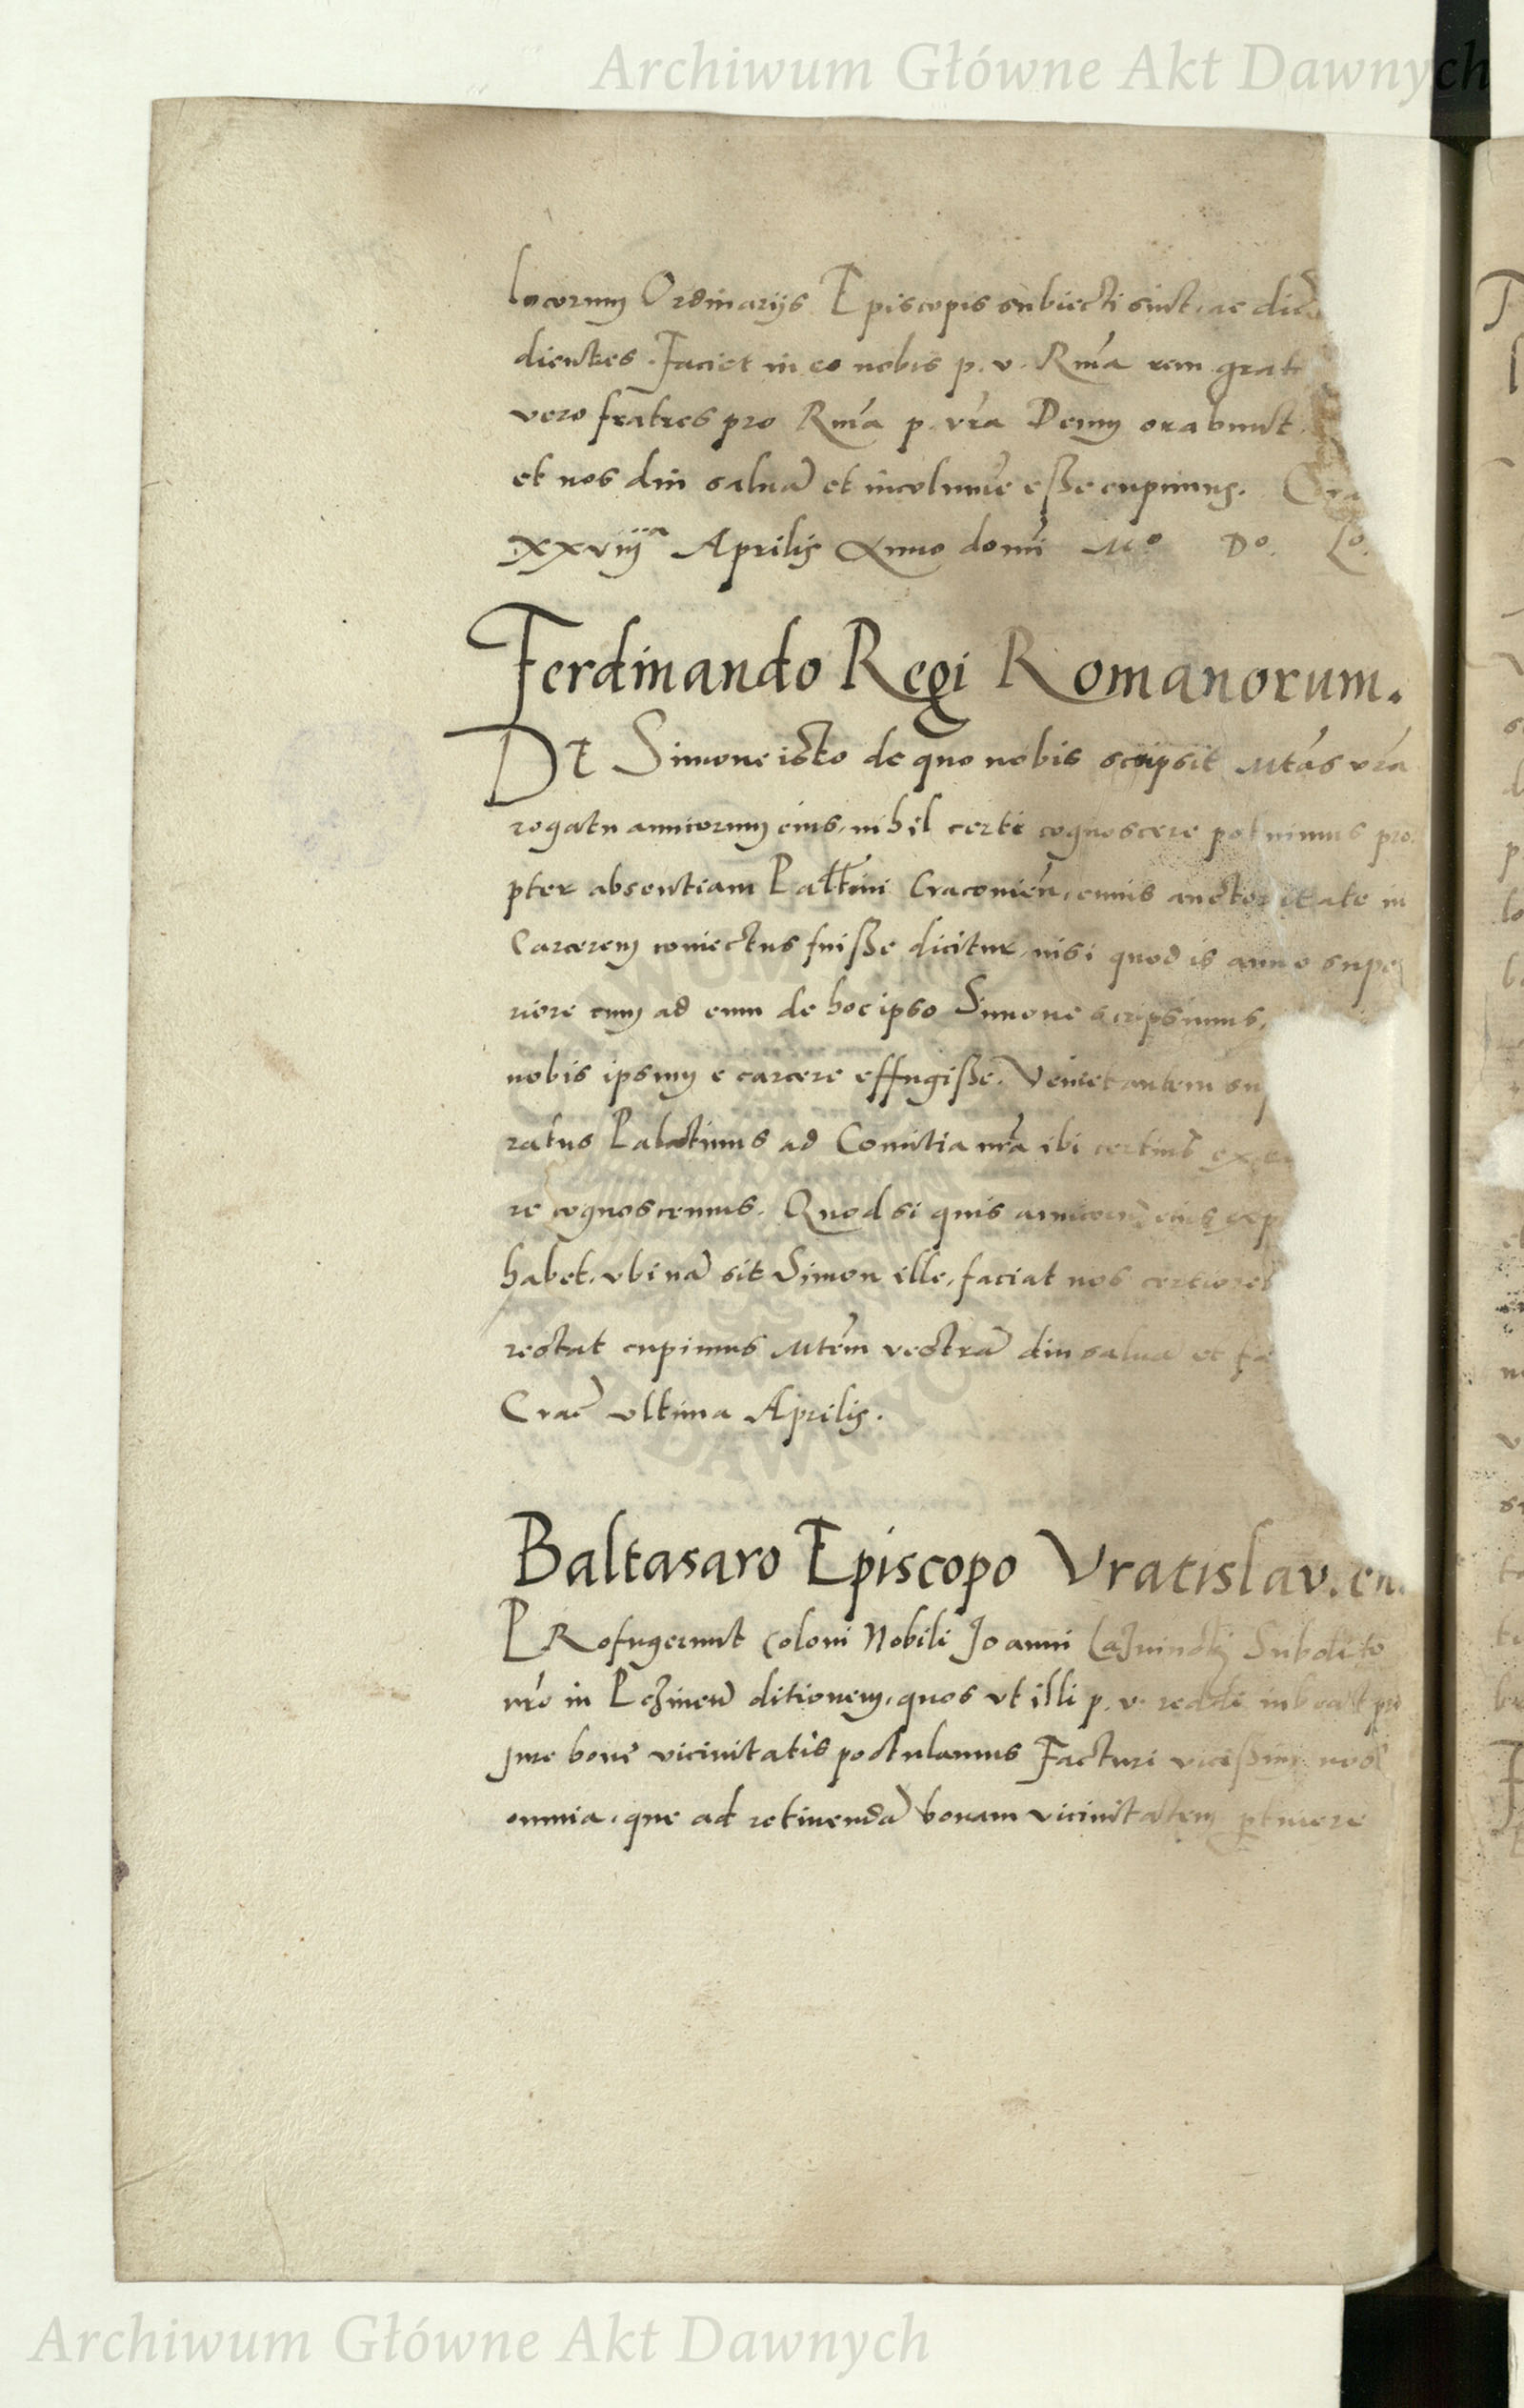 Archiwum Główne Akt Dawnych
locorum Ordinarijs Episcopis subiecti sint, ac
dientes. Faciet in eo nobis p. v. Rma rem grat
vero fratres pro Rma p. vra Deum orabunt.
et nos diu saluā et incolumē esse cupimus. Cra
xxviijª Aprilis Anno domī Mº Dº. Lº.
Ferdinando Regi Romanorum.
DE Simone isto de quo nobis scripsit Mtās vrā
rogatu amicorum eius, nihil certi cognoscere potuimus pro
pter absentiam Pallatini Cracovieñ, cuius auctoritate in
Carcerem coniectus fuisse dicitur, nisi quod is anno supe
riore cum ad eum de hoc ipso Simone scripsimus,
nobis ipsum e carcere effugisse. Veniet autem
ratus Palatinus ad Comitia nrā ibi certius
re cognoscemus. Quod si quis amicorū eius
habet, vbi nā sit Simon ille, faciat nos certiores
restat cupimus Mtēm vestrā diu saluā et
Crac̄ vltima Aprilis.
Baltasaro Episcopo Vratislav.en.
PRofugerunt Coloni Nobili Joanni Subdito
nrō in ditionem, quos vt illi p. v. reddi iubeat pro
jure bone vicinitatis postulamus Facturi vicissim nos
omnia, que ad retinendā bonam vicinitatem ptinere
Archiwum Główne Akt Dawnych